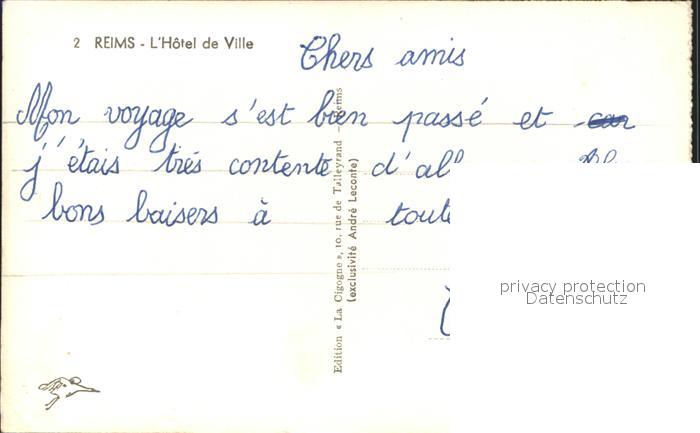 2 REIMS - L'Hôtel de Ville
Chers amis
Mon voyage s'est bien passé et
j'étais très contente d'al
bons baisers à toute
Edition « La Cigogne », 10, rue de Talleyrand - Reims
(exclusivité André Leconte)
privacy protection
Datenschutz